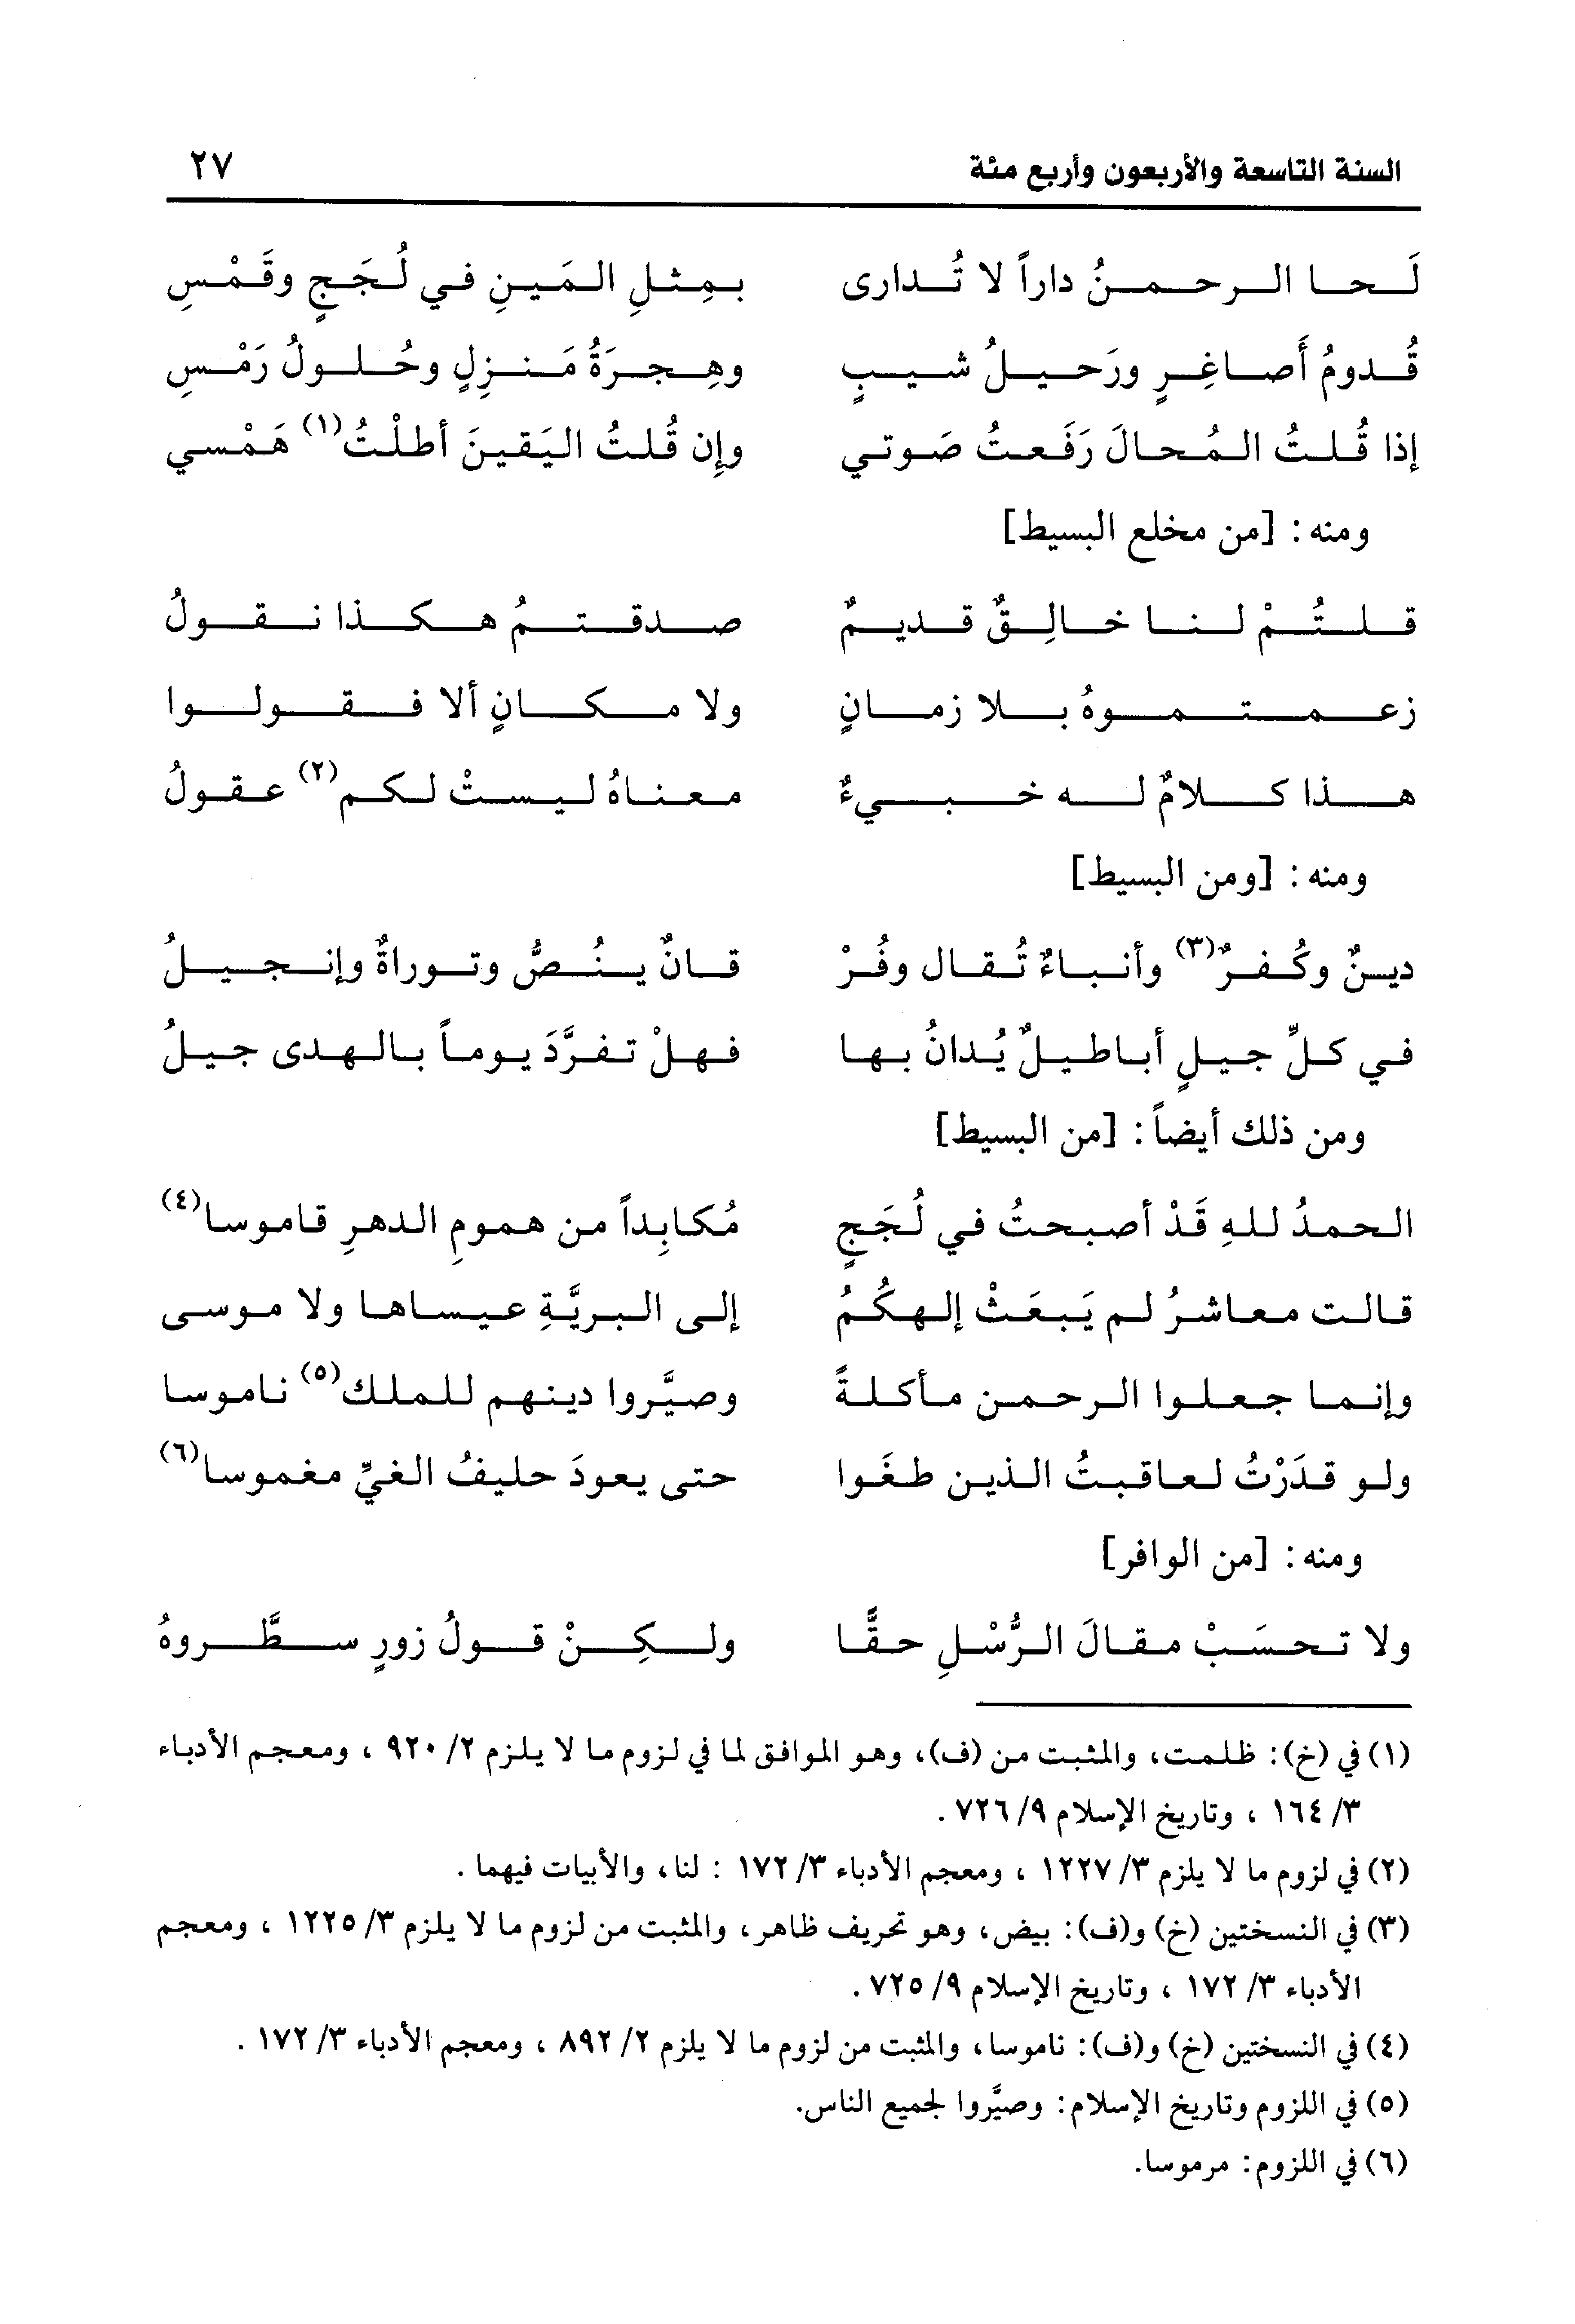 السنة التاسعة والأربعون وأربع مئة ٢٧
لَحا الرحمنُ داراً لا تُدارى بمِثلِ المَينِ في لُجَجٍ وقَمْسِ
قُدومُ أَصاغِرٍ ورَحيلُ شيبٍ وهِجرَةُ مَنزِلٍ وحُلولُ رَمْسِ
إذا قُلتُ المُحالَ رَفَعتُ صَوتي وإِن قُلتُ اليَقينَ أطلْتُ(١) هَمْسي
ومنه: [من مخلع البسيط]
قلتُمْ لنا خالِقٌ قديمٌ صدقتمُ هكذا نقولُ
زعمتموهُ بلا زمانٍ ولا مكانٍ ألا فقولوا
هذا كلامٌ له خبيءٌ معناهُ ليستْ لكم(٢) عقولُ
ومنه: [ومن البسيط]
دينٌ وكُفرٌ(٣) وأنباءٌ تُقال وفُرْ قانٌ ينُصُّ وتوراةٌ وإنجيلُ
في كلِّ جيلٍ أباطيلٌ يُدانُ بها فهلْ تفرَّدَ يوماً بالهدى جيلُ
ومن ذلك أيضاً: [من البسيط]
الحمدُ للهِ قَدْ أصبحتُ في لُجَجٍ مُكابِداً من همومِ الدهرِ قاموسا(٤)
قالت معاشرُ لم يَبعَثْ إلهكُمُ إلى البريَّةِ عيساها ولا موسى
وإنما جعلوا الرحمن مأكلةً وصيَّروا دينهم للملك(٥) ناموسا
ولو قدَرْتُ لعاقبتُ الذين طغَوا حتى يعودَ حليفُ الغيِّ مغموسا(٦)
ومنه: [من الوافر]
ولا تحسَبْ مقالَ الرُّسْلِ حقًّا ولكِنْ قولُ زورٍ سطَّروهُ
(١) في (خ): ظلمت، والمثبت من (ف)، وهو الموافق لما في لزوم ما لا يلزم ٢/ ٩٢٠، ومعجم الأدباء
٣/ ١٦٤، وتاريخ الإسلام ٩/ ٧٢٦.
(٢) في لزوم ما لا يلزم ٣/ ١٢٢٧، ومعجم الأدباء ٣/ ١٧٢: لنا، والأبيات فيهما.
(٣) في النسختين (خ) و(ف): بيض، وهو تحريف ظاهر، والمثبت من لزوم ما لا يلزم ٣/ ١٢٢٥، ومعجم
الأدباء ٣/ ١٧٢، وتاريخ الإسلام ٩/ ٧٢٥.
(٤) في النسختين (خ) و(ف): ناموسا، والمثبت من لزوم ما لا يلزم ٢/ ٨٩٢، ومعجم الأدباء ٣/ ١٧٢.
(٥) في اللزوم وتاريخ الإسلام: وصيَّروا لجميع الناس.
(٦) في اللزوم: مرموسا.